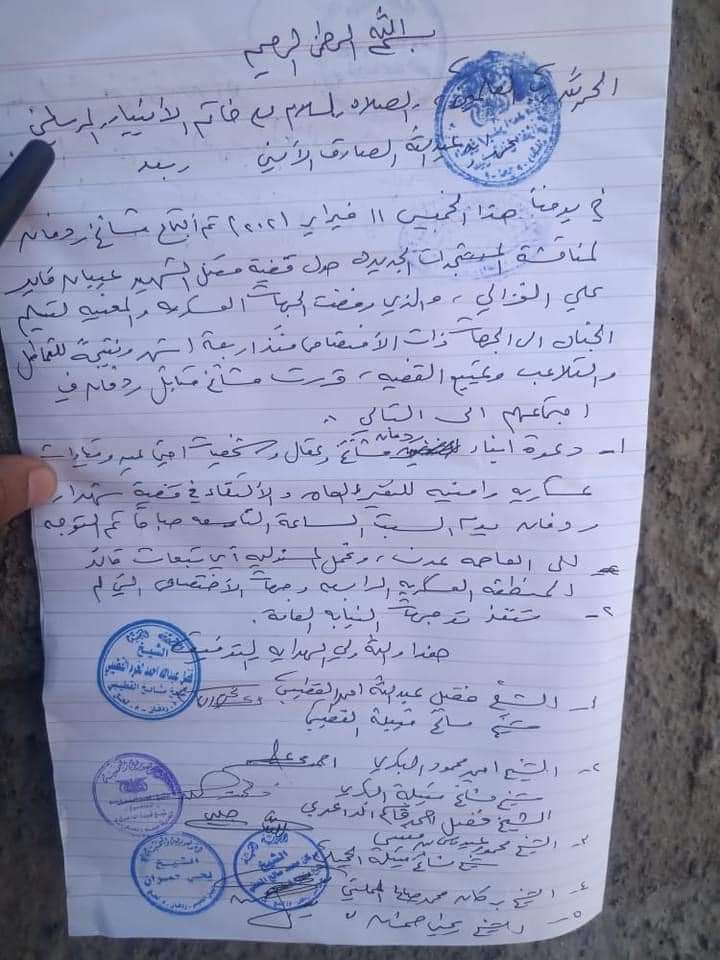 بسم الله الرحمن الرحيم
الحمد لله رب العالمين والصلاة والسلام على خاتم الأنبياء والمرسلين
محمد ابن عبدالله الصادق الأمين وبعد
في يومنا هذا الخميس ١١ فبراير ٢٠٢١ تم اجتماع مشائخ ردفان
لمناقشة المستجدات الجديدة حول قضية مقتل الشهيد عبيان قايد
علي الغزالي، والذي رفضت الجهات العسكرية والمعنيه تسليم
الجناه الى الجهات ذات الأختصاص منذ اربعة اشهر ونتيجة للتماطل
والتلاعب وتمييع القضيه، قررت مشائخ قبائل ردفان في
اجتماعهم الى التالي:
١- دعوة ابناء ردفان مشائخ وعقال وشخصيات اجتماعيه وقيادات
عسكريه وامنيه للنفير العام والألتقاء في منصة شهداء
ردفان يوم السبت الساعة التاسعه صباحا ثم التوجه
الى العاصمه عدن، ونحمل المسئوليه أي تبعات قائد
المنطقه العسكريه الرابعه وجهات الأختصاص التي لم
٢- تنفذ توجيهات النيابه العامة.
هذا والله ولي الهدايه والتوفيق
١- الشيخ فضل عبدالله احمد القطيبي
شيخ مشائخ قبيلة القطيبي
٢- الشيخ امين محمود البكري
شيخ مشائخ قبيلة البكري
الشيخ فضل احمد قاسم الداعري
٣- الشيخ محمود
شيخ مشائخ قبيلة
٤- الشيخ بركان محمد صالح المحلئي
٥- الشيخ يحيى حمران
الشيخ
فضل عبدالله احمد القطيبي
الشيخ
يحيى حمران
الشيخ